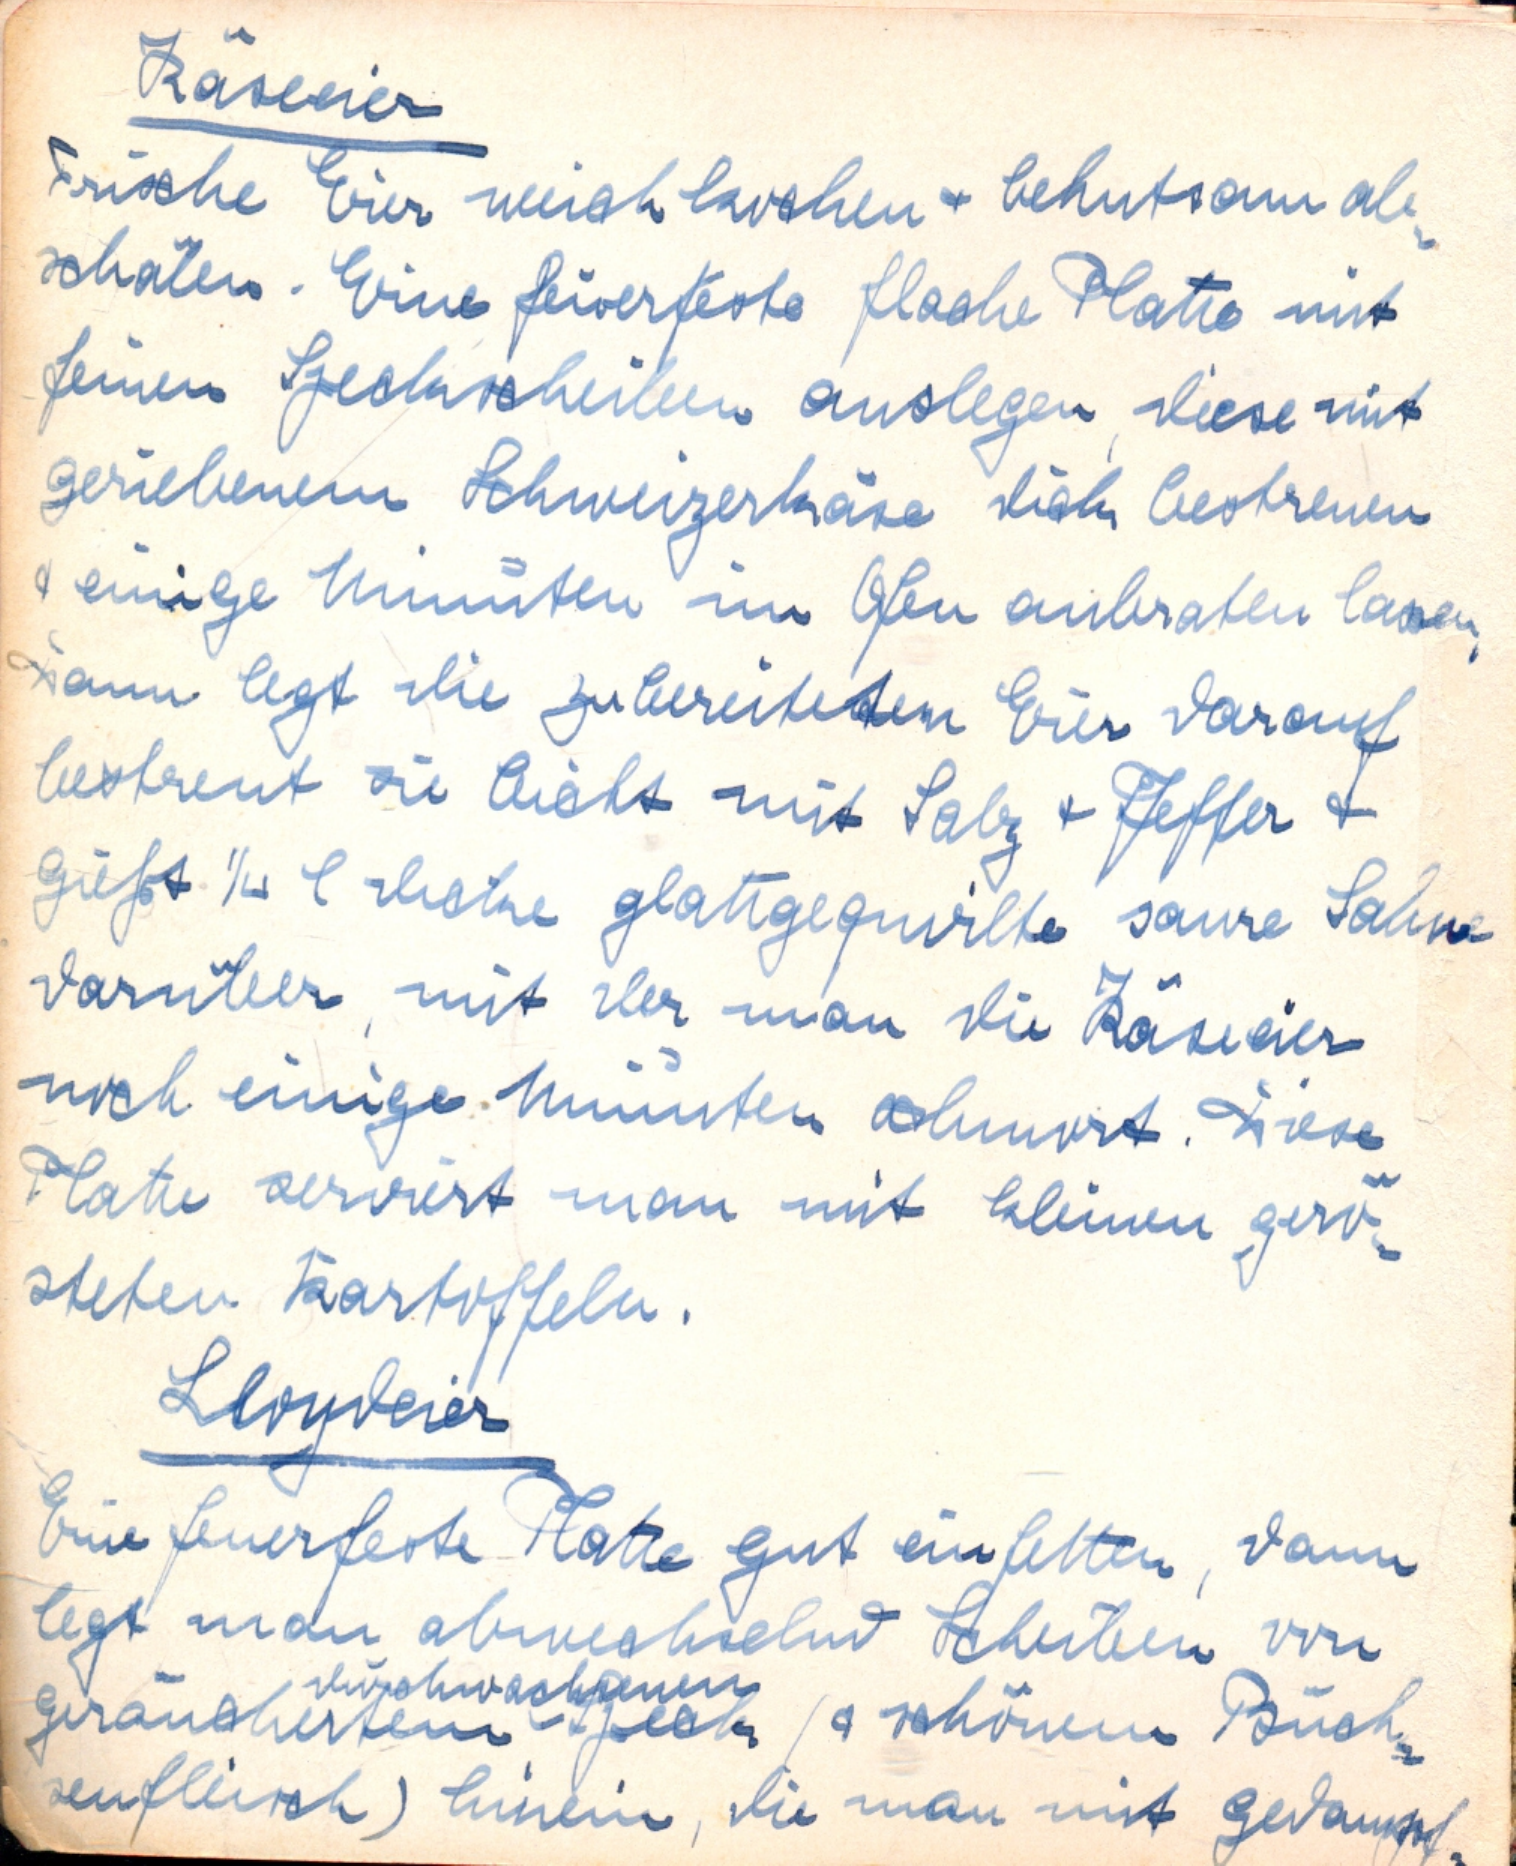 Käseeier
Frische Eier weich kochen + behutsam ab-
schälen. Eine feuerfeste flache Platte mit
feinen Speckscheiben auslegen, diese mit
geriebenem Schweizerkäse dick bestreuen
+ einige Minuten im Ofen anbraten lassen,
Dann legt die zubereiteten Eier darauf
bestreut sie leicht mit Salz + Pfeffer +
gießt l dicke glattgequirlte saure Sahne
darüber, mit der man die Käseeier
noch einige Minuten schmort. Diese
Platte serviert man mit kleinen gerö-
steten Kartoffeln.
Lloydeier
Eine feuerfeste Platte gut einfetten, dann
legt man abwechselnd Scheiben von
durchwachsenen
geräuchertem Speck (+ schönem Büch-
senfleisch) hinein, die man mit gedämpf-